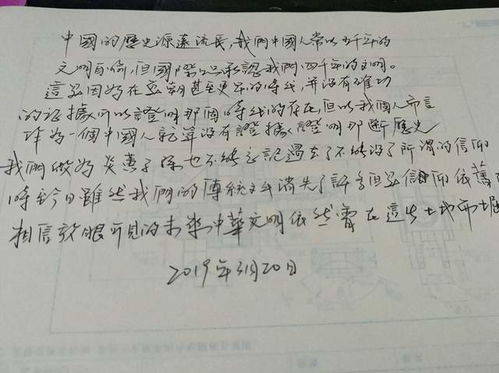 中國的歷史源遠流長,我們中國人常以五千年的
文明自倫,但國際只承認我們四千年的文明。
這是因為在夏朝甚至更早的時候,并沒有確切
的証據所以證明那個時候的存在,但以我個人而言
作為一個中國人就算沒有證據證明那断歷史
我們做為炎黃子孫也不能忘記過去不能沒了所謂的信仰
時至今日雖然我們的傳統文化消失了許多但是信仰依舊
相信就眼可見的未來中華文明依然會在這片土地
2019年3月20日